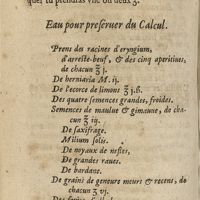 quel tu prendras vne ou deux ʒ.
Eau pour preseruer du Calcul.
Prens des racines d'eryngium,
d'arreste-beuf, & des cinq aperitiues,
de chacun ℥ j.
De herniaria M. ij.
De l'ecorce de limons ℥ j.ß.
Des quatre semences grandes, froides.
Semences de maulue & gimauue, do cha-
cun ℥ iij.
De saxifrage.
Milium solis.
De noyaux de nefles,
De grandes raues.
De bardane.
De grains de geneure meurs & recens, do
chacun ℥ vj.